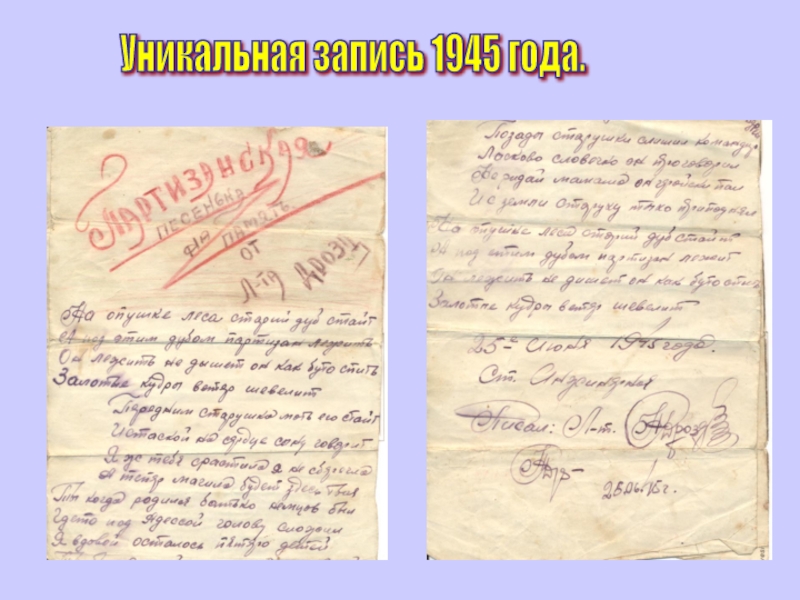 Уникальная запись 1945 года.
Партизанская
песенька
на память
от
Л-та Дрозд
На опушке леса старий дуб стаит
А под этим дубом партизан лежить
Он лежить не дышет он как буто спить
Золотые кудры ветер шевелит
Перодним старушка мать его стаит
И стаской на сердце сону говорит
Я же тебя срастила я не сберегла
А тепер магила будет здесь твоя
Ты когда родился батько немцов бил
Гдето под Адессой голову сложил
Я вдовой осталось пятеро детей
Позады старушки слишин командир
Ласково словечко он проговорил
Не ридай мамаша он геройски пал
И с земли старуху тихо приподнял
На опушке леса старий дуб стаит
А под этим дубом партизан лежит
Он лежить не дишет он как буто спит
Золотые кудры ветер шевелит
25го Июня 1945 года.
Ст.
Писал: Л-т. Дрозд
25.06.45г.